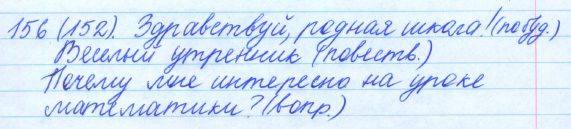 156 (152). Здравствуй, родная школа! (побуд.)
Весёлый утренник (повеств.)
Почему мне интересно на уроке
математики? (вопр.)